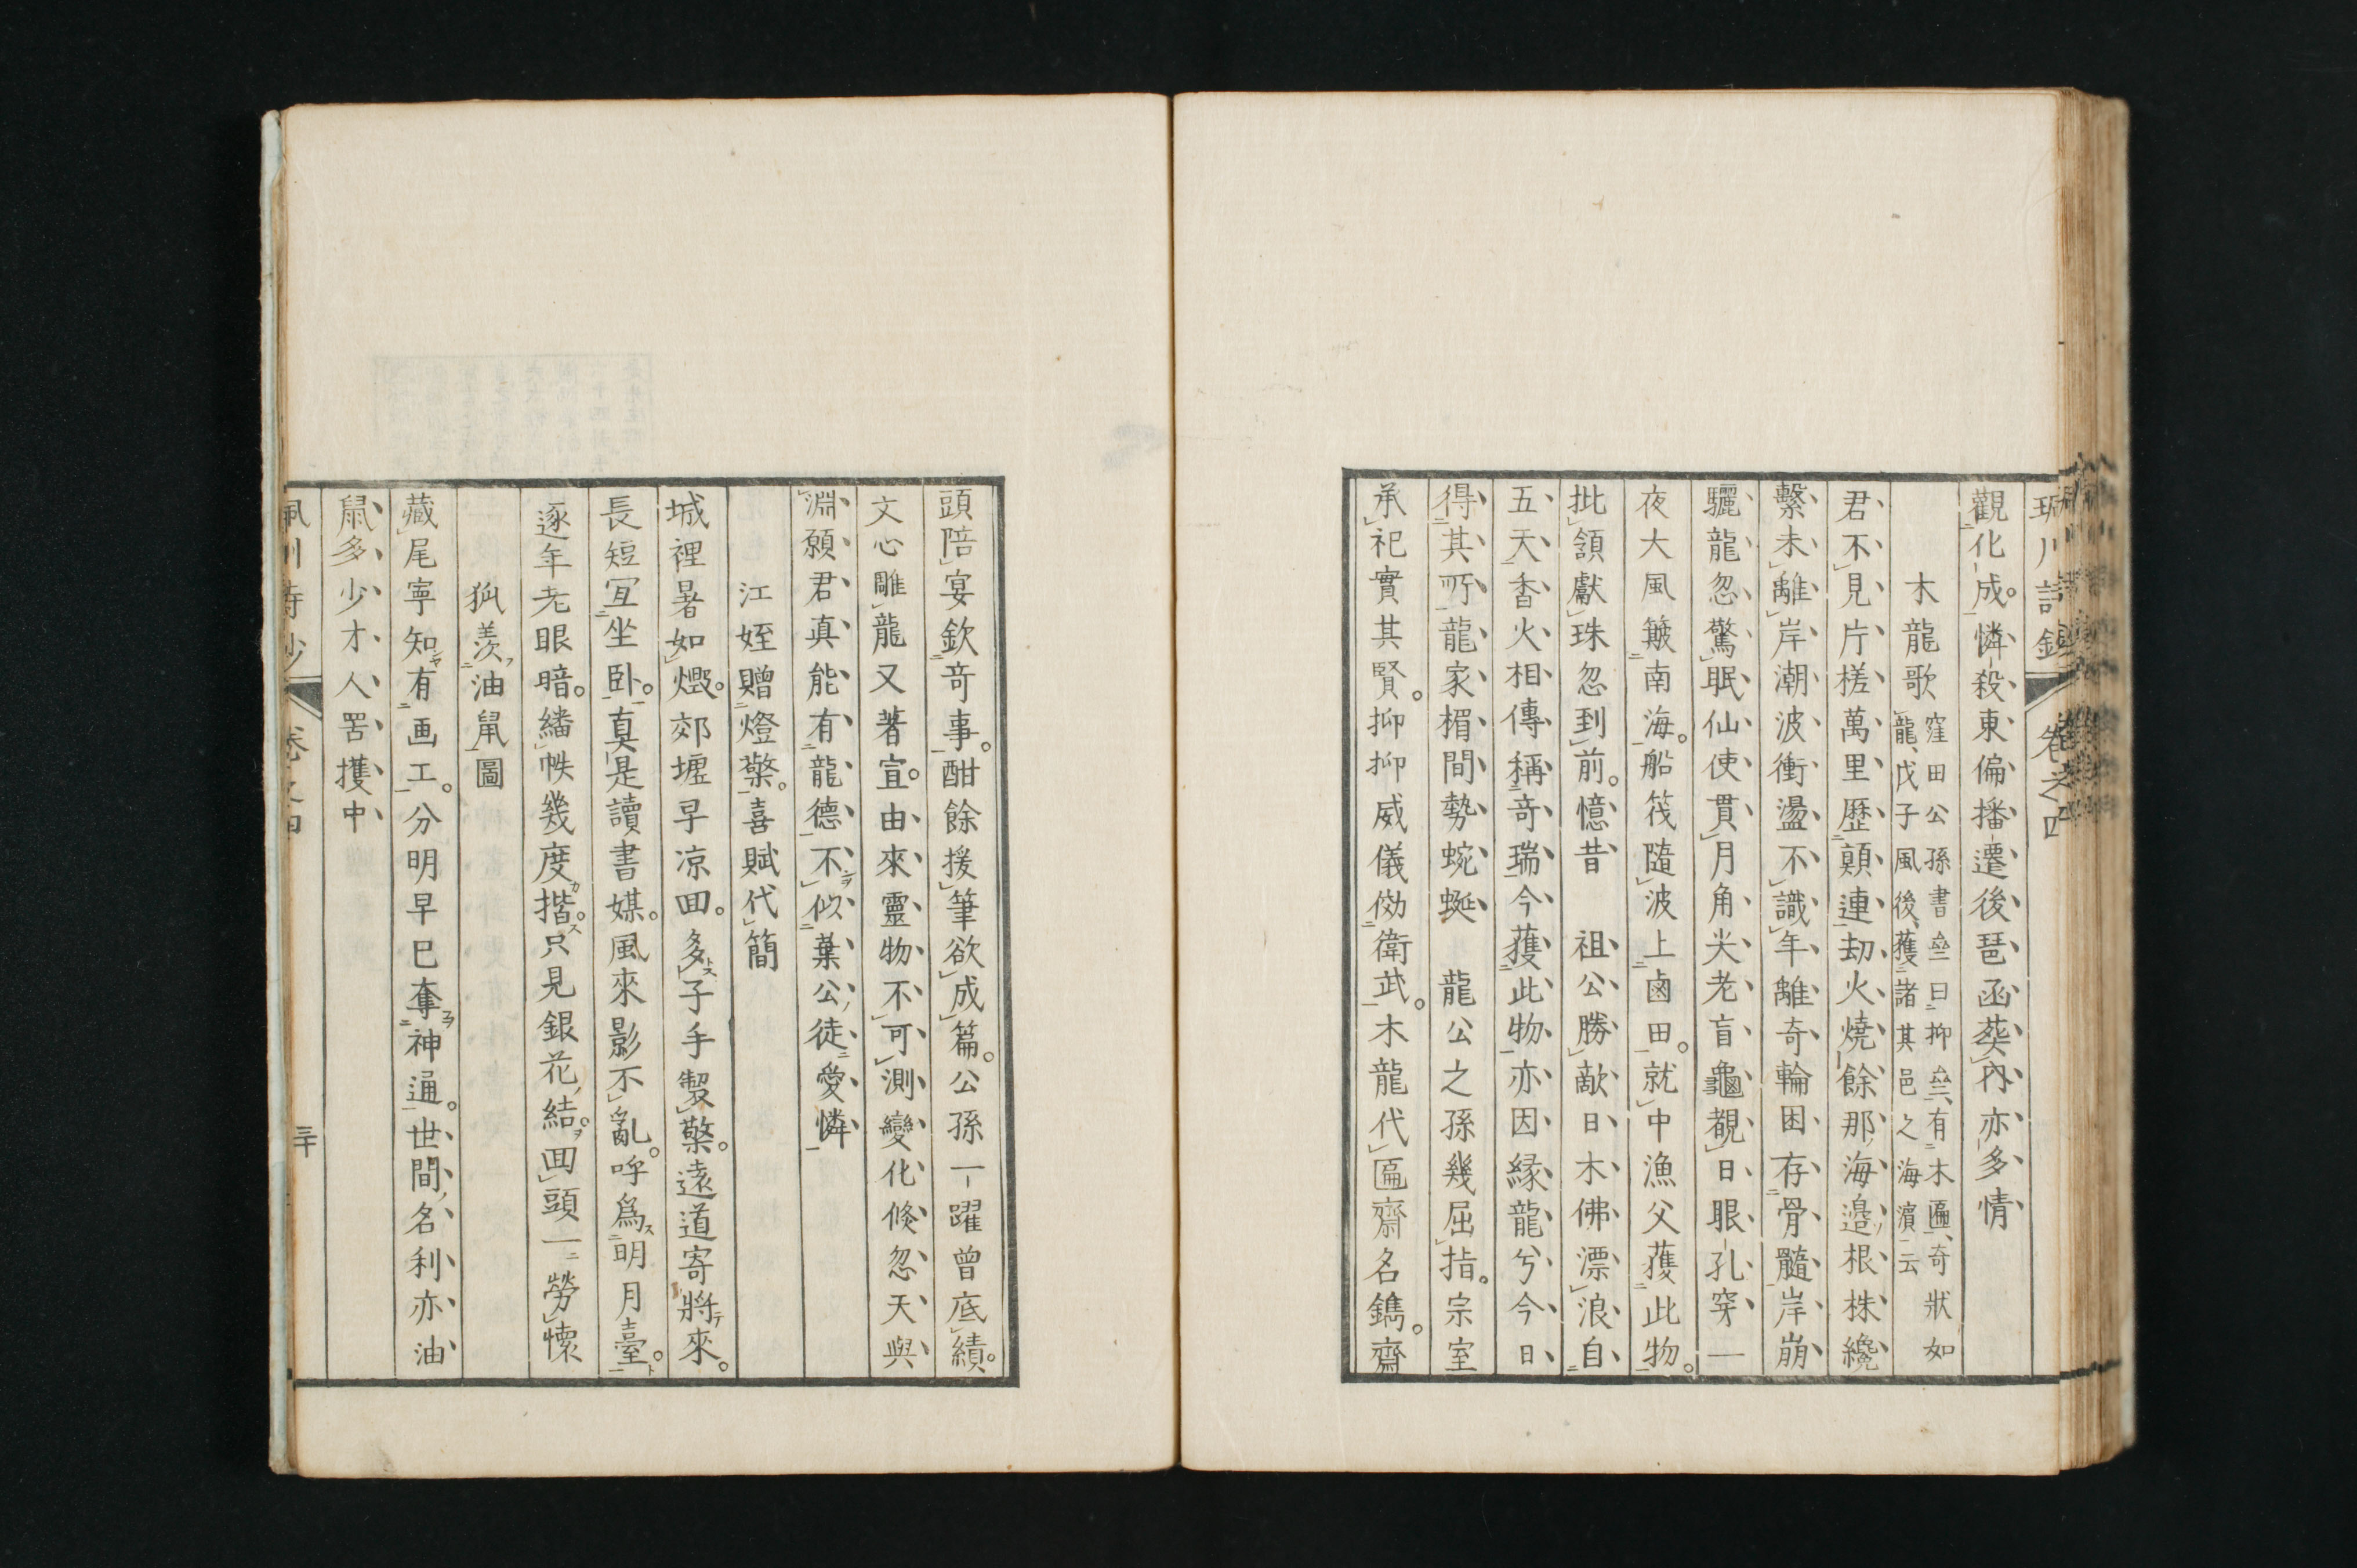 觀化成。憐殺東偏播遷後琶函葵內亦多情
木龍歌
窪田公孫書壘曰抑壘有木匾奇狀如
龍戊子風後獲諸其邑之海濱云
君不見片槎萬里歷顛連劫火燒餘那海邊根株纔
繫未離岸潮波衝盪不識年離奇輪囷存骨髓岸崩
驪龍忽驚眠仙使貫月角尖老盲龜覩日眼孔穿一
夜大風簸南海。船筏隨波上鹵田。就中漁父獲此物。
批頷獻珠忽到前。憶昔 祖公勝敵日木佛漂浪自
五天香火相傳稱奇瑞今獲此物亦因緣龍兮今日
得其所龍家楣間勢蜿蜒 龍公之孫幾屈指。宗室
承祀實其賢。抑抑威儀傚衛武。木龍代匾齋名鐫。齋
頭陪宴欽奇事。酣餘援筆欲成篇。公孫一躍曾底績。
文心雕龍又著宜。由來靈物不可測變化倏忽天與
淵願君真能有龍德不似葉公徒愛憐
江姪贈燈檠。喜賦代簡
城裡暑如燬。郊墟早凉回。多子手製檠。遠道寄將來。
長短冝坐臥。真是讀書媒。風來影不亂。呼爲明月臺。
逐年老眼暗。繙帙幾度揩。只見銀花結。回頭一勞懷
狐羨油鼠圖
藏尾寧知有画工。分明早已奪神通。世間名利亦油
鼠多少才人罟擭中
卷之四
三十